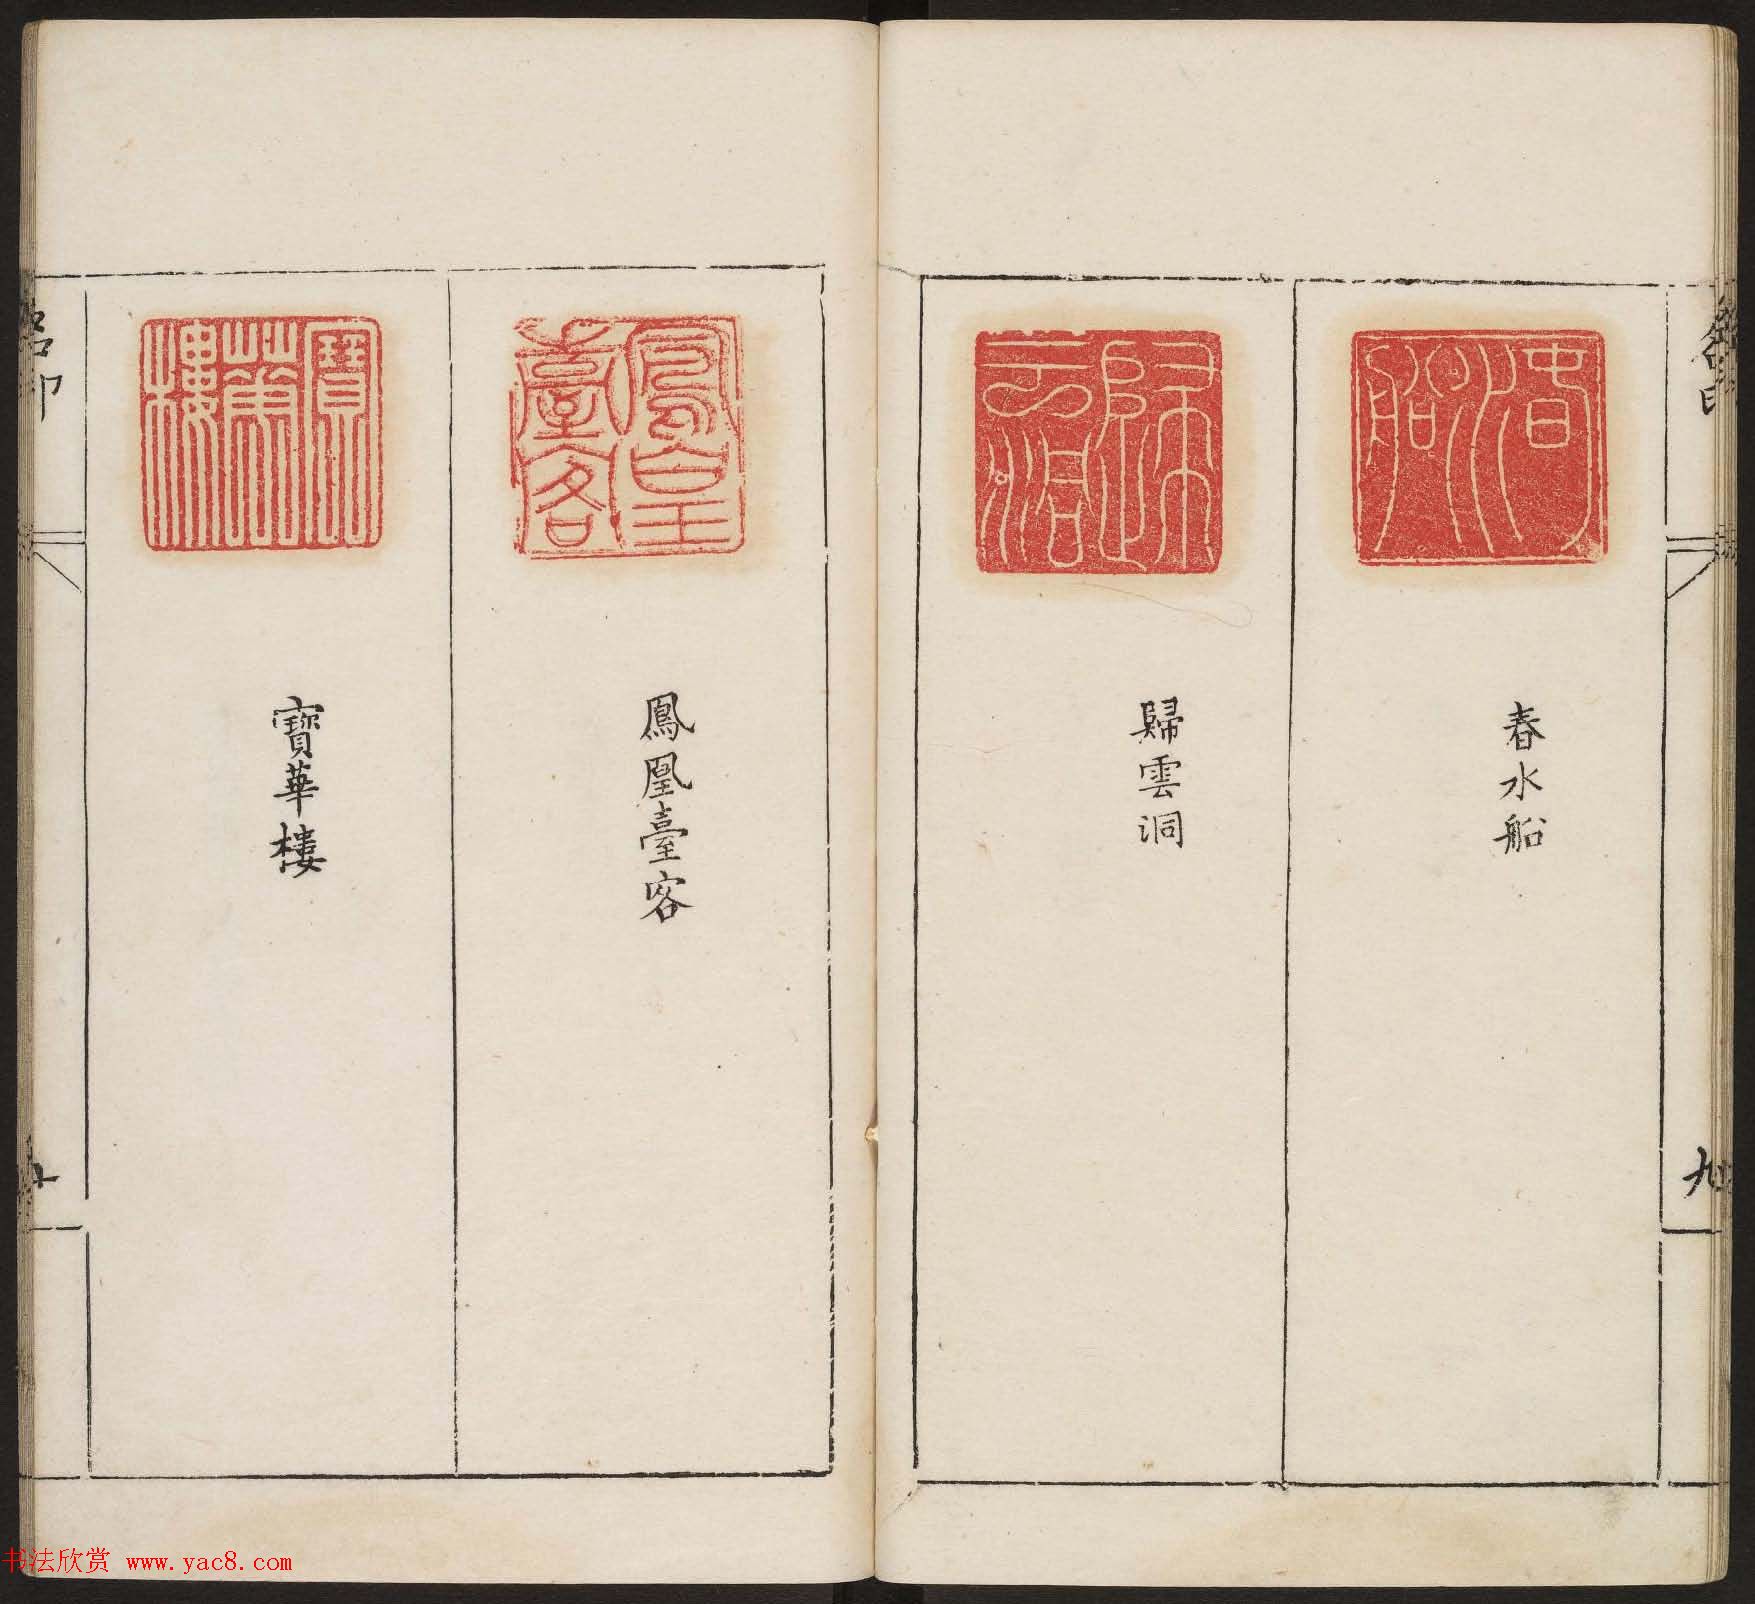 春水船
歸雲洞
鳳凰臺客
寶華樓
九
书法欣赏 www.yac8.com